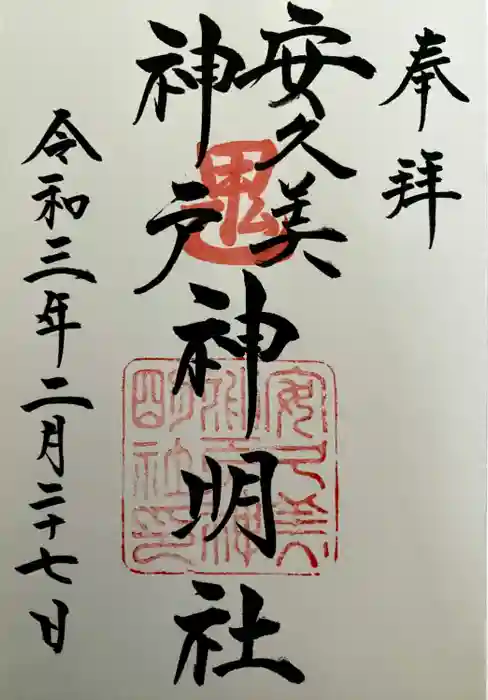 奉拝
安久美
神戸
神明社
令和三年二月二十七日
鬼
安久美
神戸神
明社印